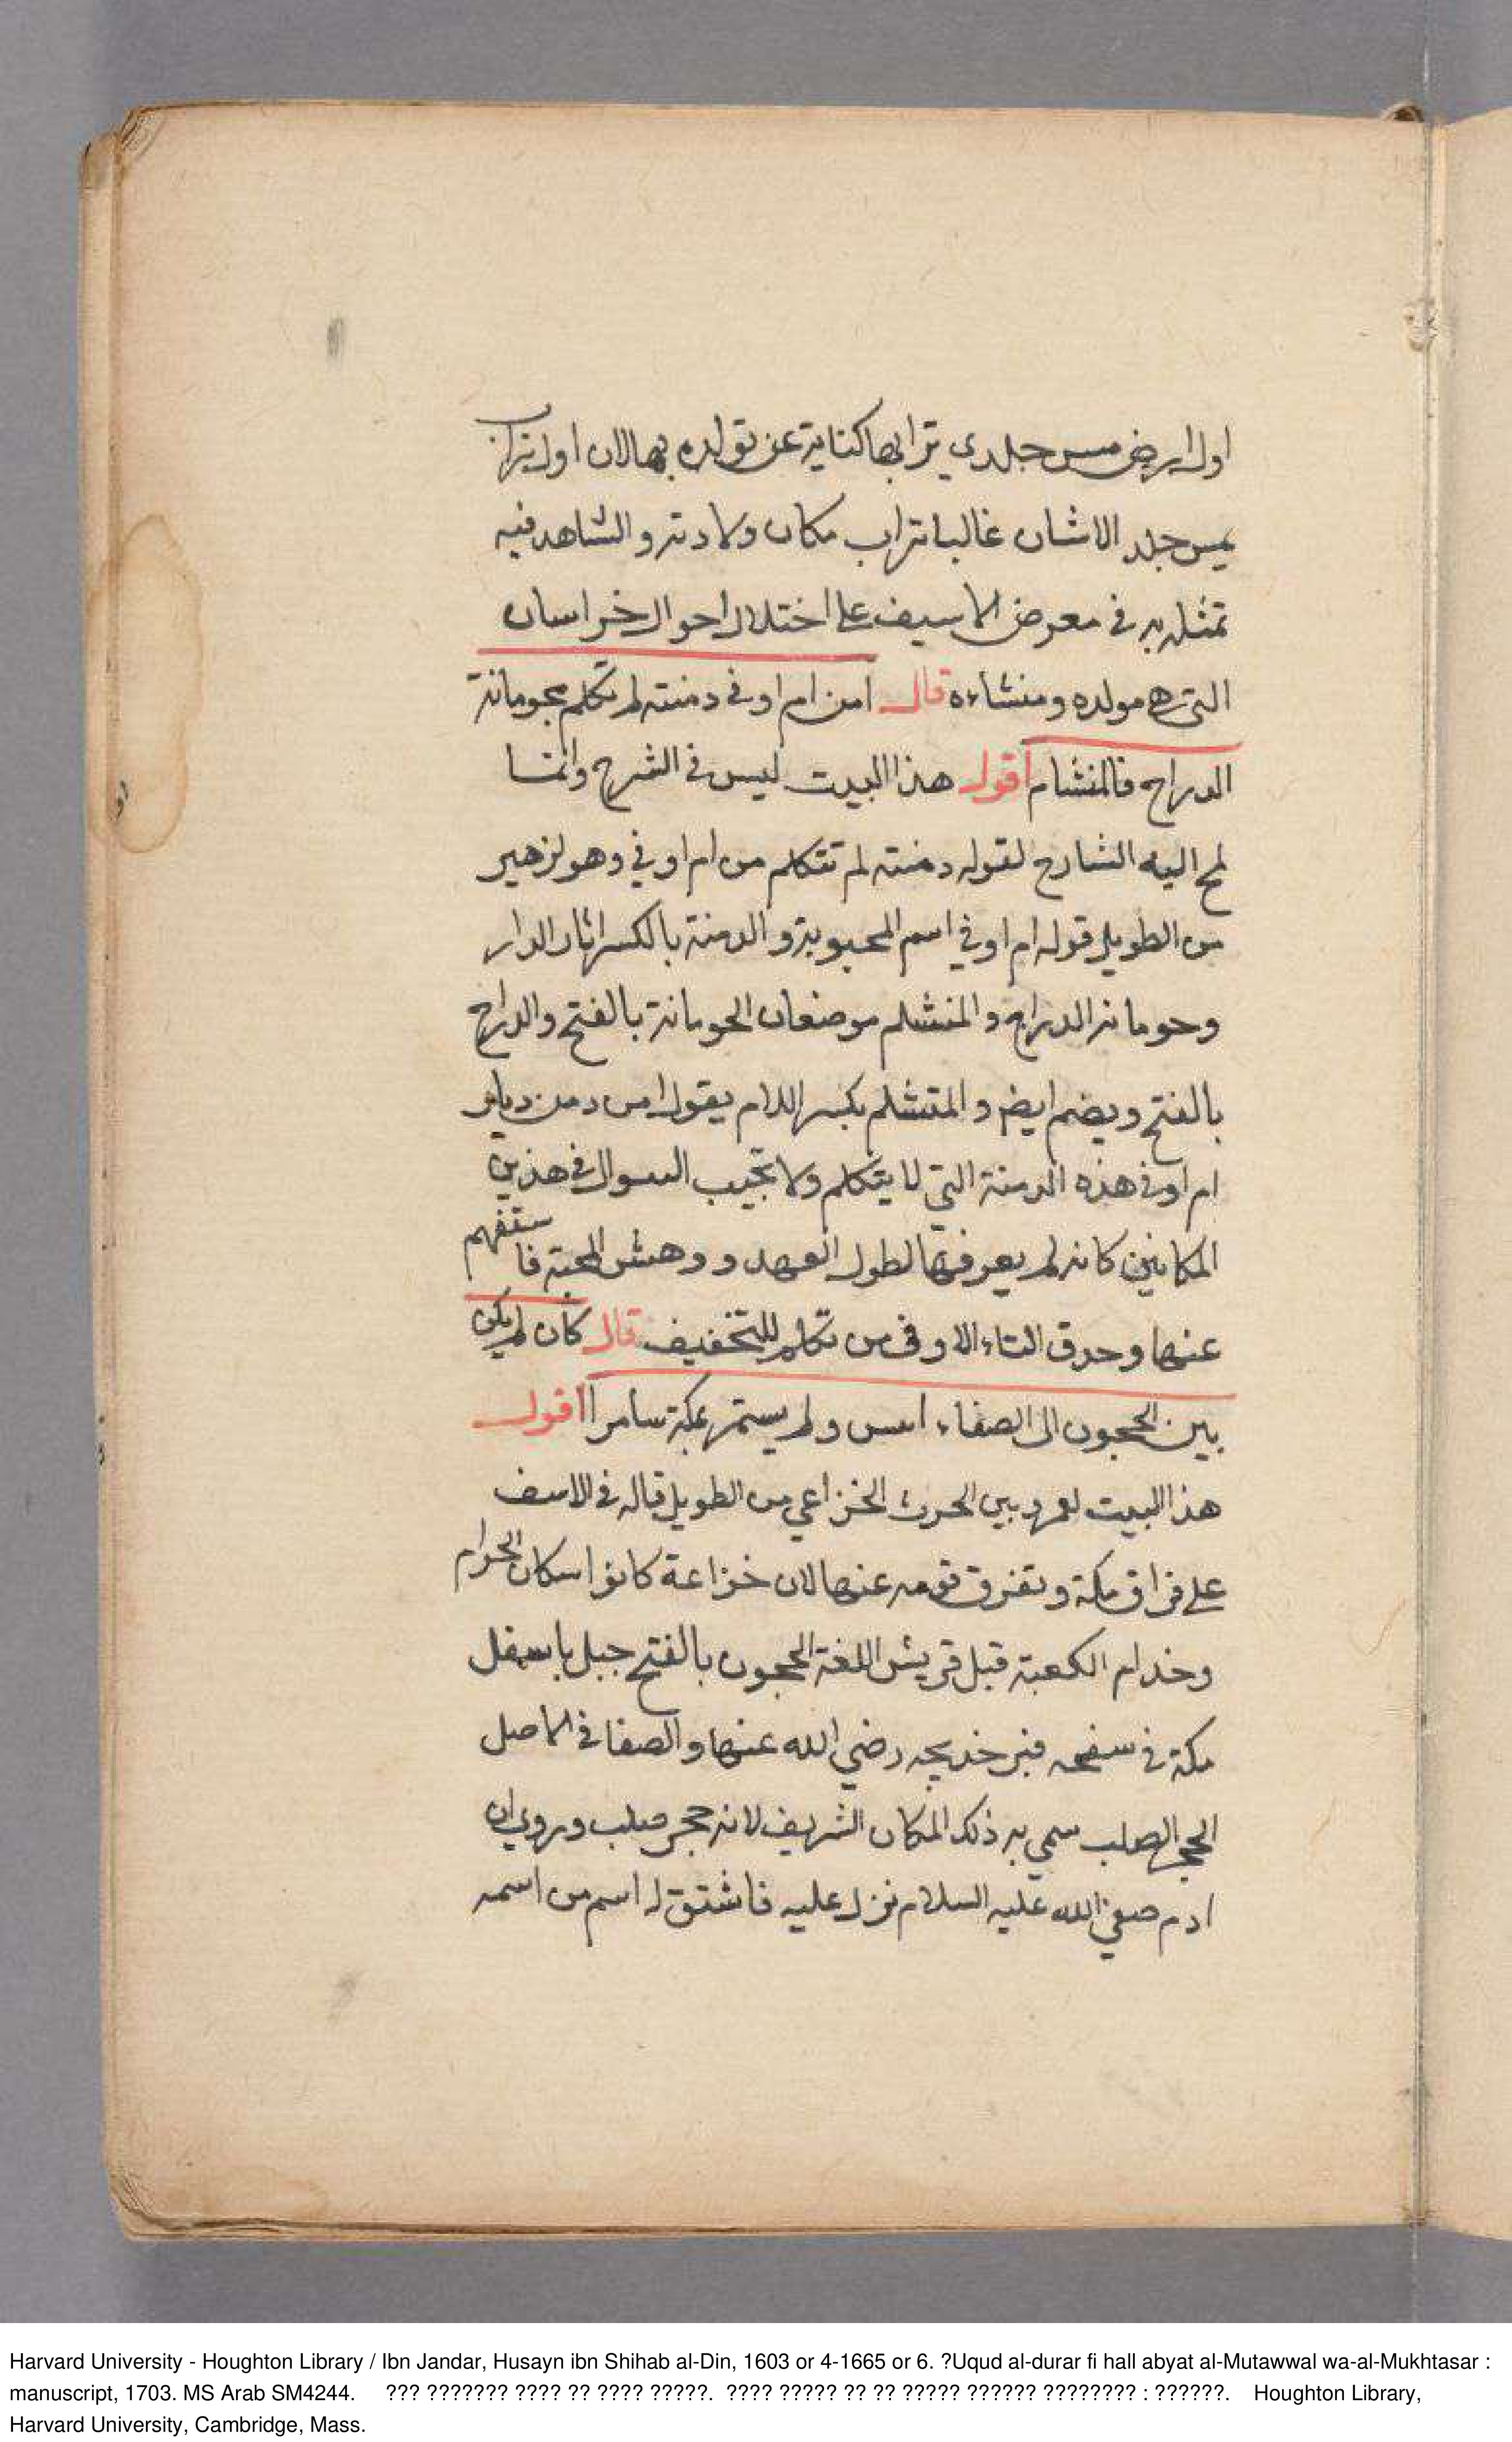 اول ارض مس جلدي ترابها كناية عن تولده بها لان اول تراب
يمس جلد الانسان غالبا تراب مكان ولادته والشاهد فيه
تمثله به في معرض الاسيف على اختلال احوال خراسان
التي هي مولده ومنشاءه قال امن ام اوفى دمنته لم تكلم بحومانة
الدراج فالمنشام اقول هذا البيت ليس في الشرح وانما
لمح اليه الشارح لقوله دمنته لم تتكلم من ام اوفي وهو لزهير
من الطويل قوله ام اوفي اسم المحبوبة والدمنة بالكسر اثار الدار
وحومانه الدراج والمنشلم موضعان الحومانة بالفتح والدراج
بالفتح ويضم ايض والمتشلم بكسر اللام يقول امن دمن ديار
ام اوفى هذه الدمنة التي لا يتكلم ولا تجيب السوال في هذين
المكانين كانه لم يعرفها لطول العهد و وهش المحبة فاستفهم
عنها وحدق التاء الاوفى من تكلم للتخفيف قال كأن لم يكن
بين الحجون الى الصفاء انس ولم يستمر بمكة سامرا اقول
هذا البيت لعمرو بين الحرث الخزاعي من الطويل قاله في الاسف
على فراق مكة وتفرق قومه عنها لان خزاعة كانوا سكان الحرام
وخدام الكعبة قبل قريش اللغة الحجون بالفتح جبل باسفل
مكة في سفحه قبر خديجه رضي الله عنها والصفا في الاصل
الحجر الصلب سمي به ذلك المكان الشريف لانه حجر صلب وروي ان
ادم صفي الله عليه السلام نزل عليه فاشتق له اسم من اسمه
Harvard University - Houghton Library / Ibn Jandar, Husayn ibn Shihab al-Din, 1603 or 4-1665 or 6. ?Uqud al-durar fi hall abyat al-Mutawwal wa-al-Mukhtasar :
manuscript, 1703. MS Arab SM4244. ??? ??????? ???? ?? ???? ?????. ???? ????? ?? ?? ????? ?????? ???????? : ??????. Houghton Library,
Harvard University, Cambridge, Mass.